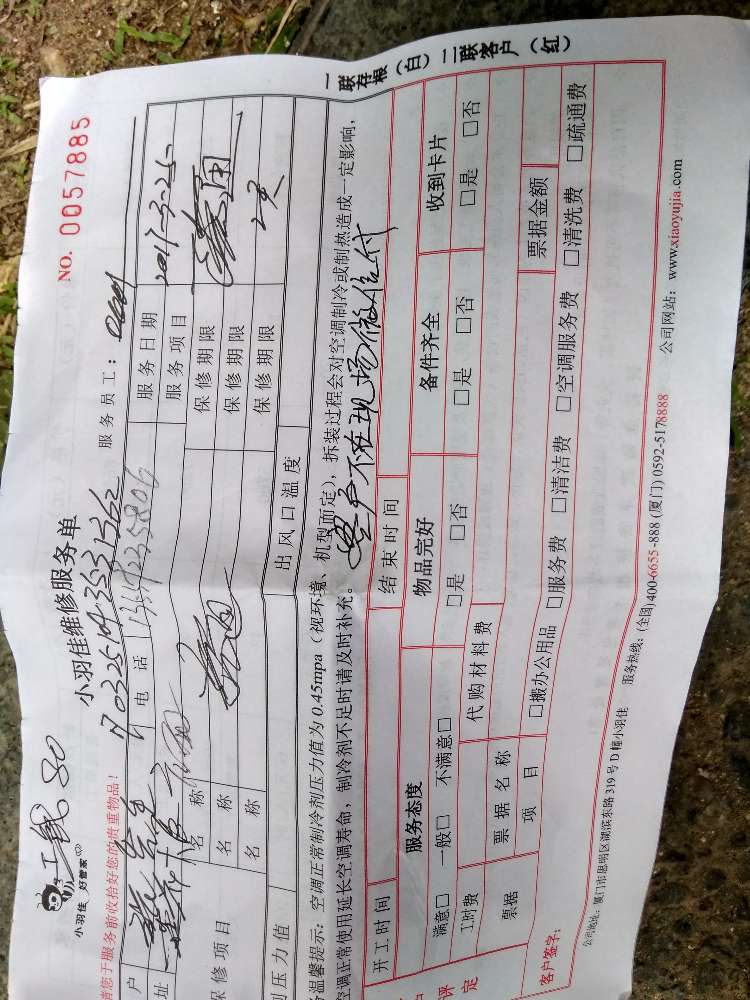 小羽佳 好管家
工钱 80
小羽佳维修服务单
NO. 0057885
请您于服务前收拾好您的贵重物品!
服务员工:
户
电 话
服 务 日 期
2017-3-25
址
服 务 项 目
名 称
保 修 期 限
保修项目
名 称
保 修 期 限
名 称
保 修 期 限
压力值
出风口温度
温馨提示:空调正常制冷剂压力值为 0.45mpa(视环境、机型而定),拆装过程会对空调制冷或制热造成一定影响,
空调正常使用延长空调寿命,制冷剂不足时请及时补充。
客户不在现场微信付
开工时间
结束时间
服务态度
物品完好
备件齐全
收到卡片
满意□ 一般□ 不满意□
□是 □否
□是 □否
□是 □否
评定
工时费
代购材料费
票据
票据名称
票据金额
项 目
□搬办公用品 □服务费 □清洁费 □空调服务费 □清洗费 □疏通费
客户签字:
公司地址:厦门市思明区湖滨东路 319 号 D 幢小羽佳 服务热线:(全国)400-6655-888 (厦门) 0592-5178888 公司网站:www.xiaoyujia.com
一联存根(白)二联客户(红)